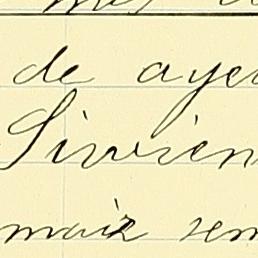 de ayer
Sirvien
maiz sem